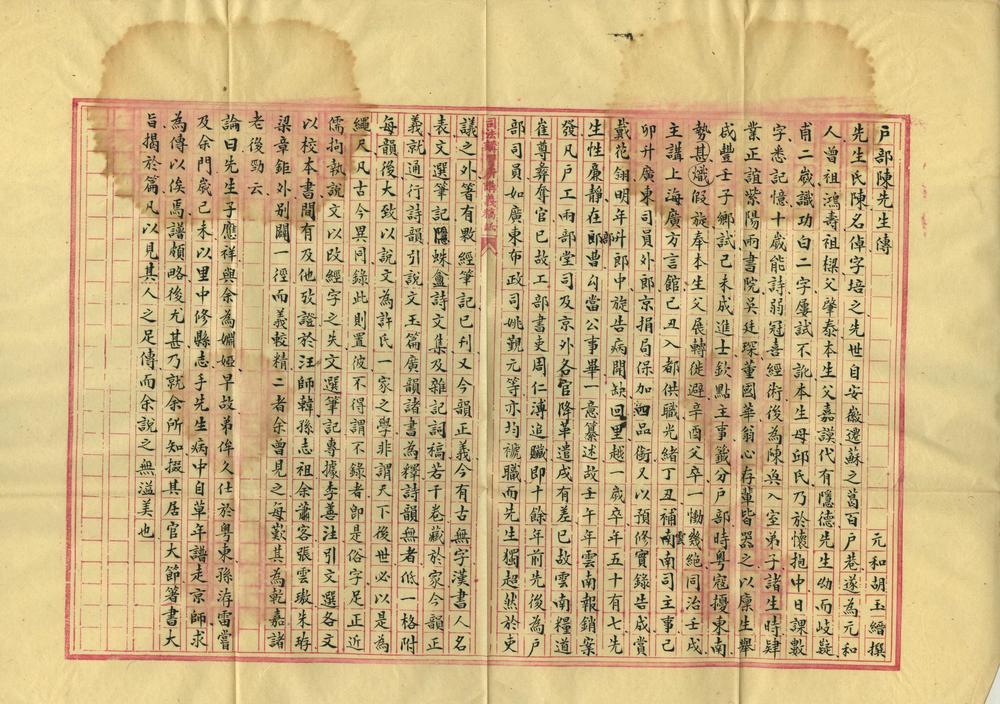 戶部陳先生傳
元和胡玉縉撰
先生氏陳名倬字培之先世自安徽遷蘇之菖百戶巷遂為元和
人曾祖鴻壽祖樑父肇泰本生父嘉謨代有隱德先生幼而岐嶷
甫二歲識功白二字屢試不訛本生母邱氏乃於懷抱中日課數
字悉記憶十歲能詩弱冠喜經術後為陳奐入室弟子諸生時肄
業正誼紫陽兩書院吳廷琛董國華翁心存輩皆器之以廩生舉
咸豐壬子鄉試己未成進士欽點主事籤分戶部時粵寇擾東南
勢甚熾假旋奉本生父展轉徙避辛酉父卒一慟幾絕同治壬戌
主講上海廣方言館己丑入都供職光緒丁丑補雲南司主事己
卯升廣東司員外郎京捐局保加四品銜又以預修實錄告成賞
戴花翎明年升郎中旋告病開缺回里越一歲卒年五十有七先
生性廉靜在郎曹勾當公事畢一意纂述故壬午年雲南報銷案
發凡戶工兩部堂司及京外各官降革遣戍有差已故雲南糧道
崔尊彝奪官已故工部書吏周仁溥追贓即十餘年前先後為戶
部司員如廣東布政司姚覲元等亦均褫職而先生獨超然於吏
司法講習所講義稿紙
議之外箸有斆經筆記已刊又今韻正義今有古無字漢書人名
表文選筆記隱蛛盦詩文集及雜記詞稿若干卷藏於家今韻正
義就通行詩韻引說文玉篇廣韻諸書為釋詩韻無者低一格附
每韻後大致以說文為許氏一家之學非謂天下後世必以是為
繩尺凡古今異同錄此則置彼不得謂不錄者卽是俗字足正近
儒拘執說文以改經字之失文選筆記專據李善注引文選各文
以校本書間有及他攷證於汪師韓孫志祖余蕭客張雲璈朱珔
梁章鉅外別闢一徑而義較精二者余曾見之每歎其為乾嘉諸
老後勁云
論曰先生子應祥與余為嫺婭早故弟侔久仕於粵東孫洊雷嘗
及余門歲己未以里中修縣志手先生病中自草年譜走京師求
為傳以俟焉譜頗略後尤甚乃就余所知掇其居官大節箸書大
旨揭於篇凡以見其人之足傳而余說之無溢美也